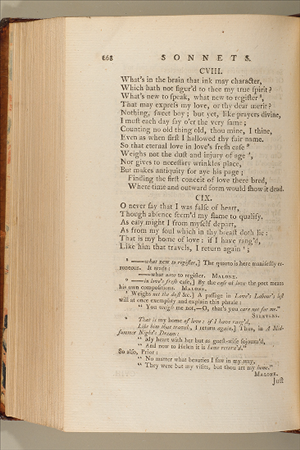 668 SONNETS.
CVIII.
What's in the brain that ink may character,
Which hath not figur'd to thee my true spirit?
What's new to speak, what new to register ⁸,
That may express my love, or thy dear merit?
Nothing, sweet boy; but yet, like prayers divine,
I must each day say o'er the very same;
Counting no old thing old, thou mine, I thine,
Even as when first I hallowed thy fair name.
So that eternal love in love's fresh case ⁹
Weighs not the dust and injury of age ¹,
Nor gives to necessary wrinkles place,
But makes antiquity for aye his page;
Finding the first conceit of love there bred,
Where time and outward form would show it dead.
CIX.
O never say that I was false of heart,
Though absence seem'd my flame to qualify.
As easy might I from myself depart,
As from my soul which in thy breast doth lie:
That is my home of love: if I have rang'd,
Like him that travels, I return again ²;
⁸ —what now to register,] The quarto is here manifestly er-
roneous. It reads:
—what now to register. MALONE.
⁹ —in love's fresh case,] By the case of love the poet means
his own compositions. MALONE.
¹ Weighs not the dust &c.] A passage in Love's Labour's lost
will at once exemplify and explain this phrase:
"You weigh me not,—O, that's you care not for me."
STEEVENS.
² That is my home of love: if I have rang'd,
Like him that travels, I return again;] Thus, in A Mid-
summer Night's Dream:
"My heart with her but as guest-wise sojourn'd,
"And now to Helen it is home return'd."
So also, Prior:
"No matter what beauties I saw in my way,
"They were but my visits, but thou art my home."
MALONE.
Just